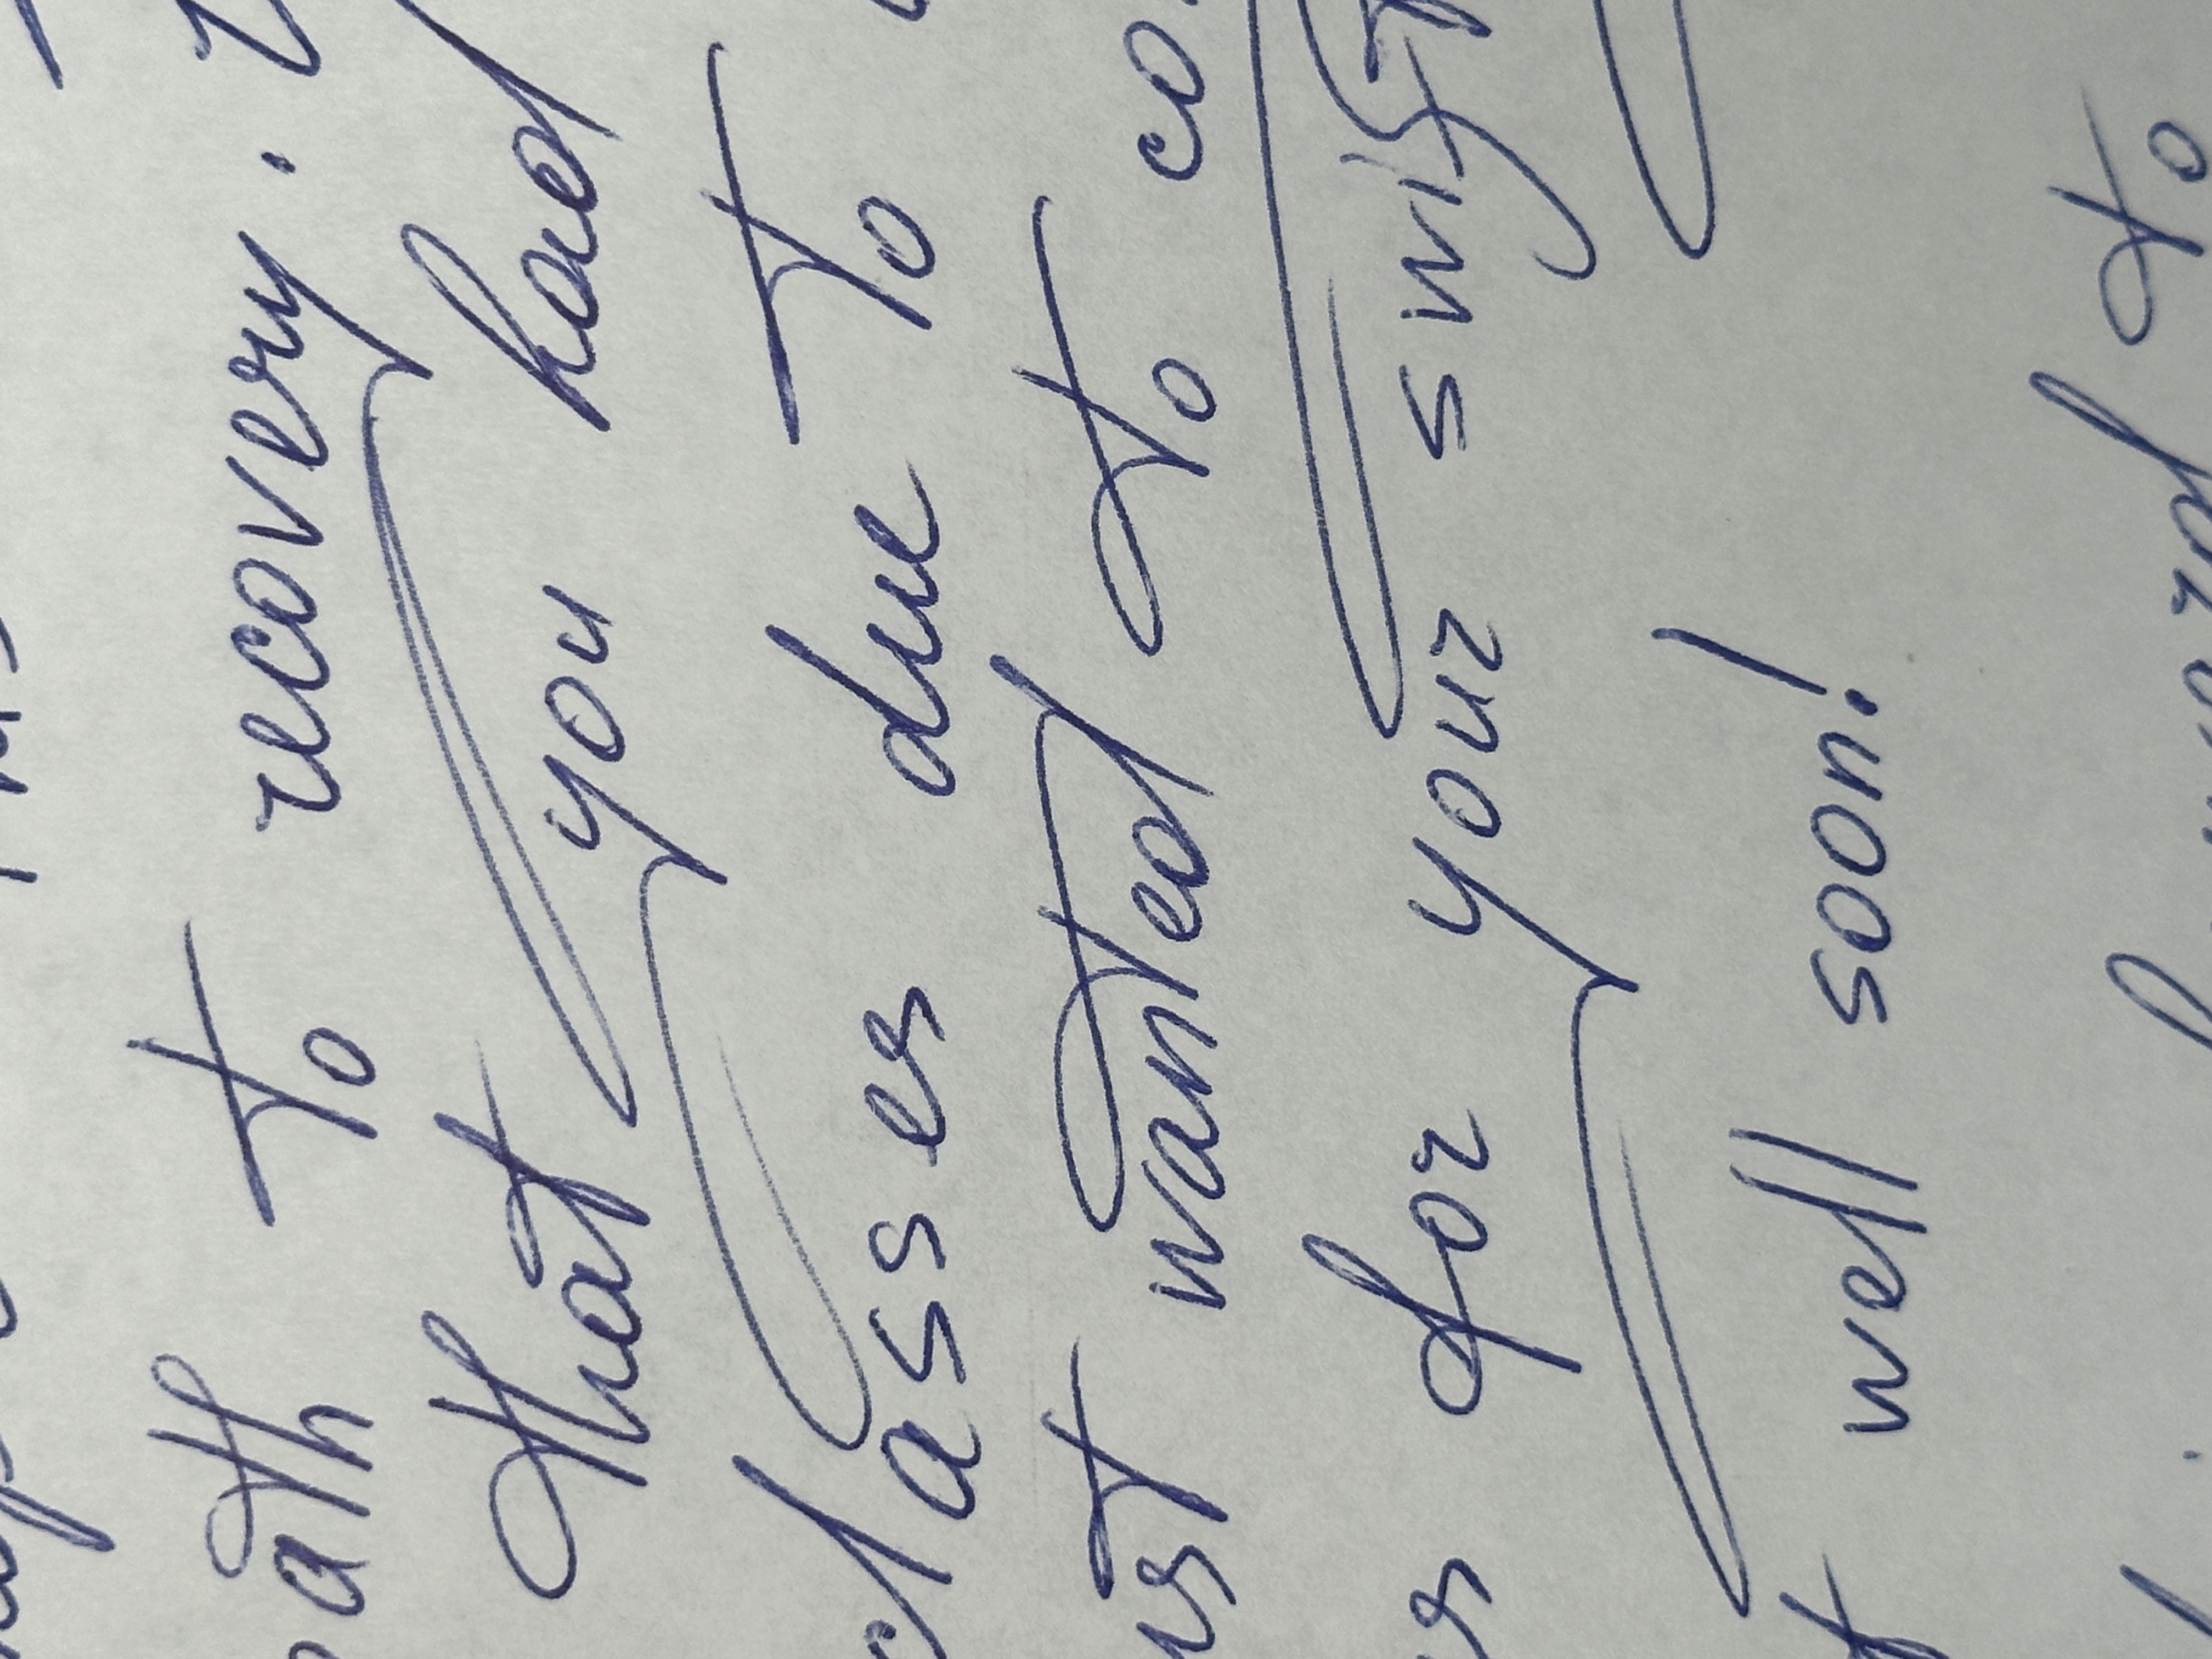 path to recovery.
that you had
classes due to
wanted to
for your swift
well soon!
forward to